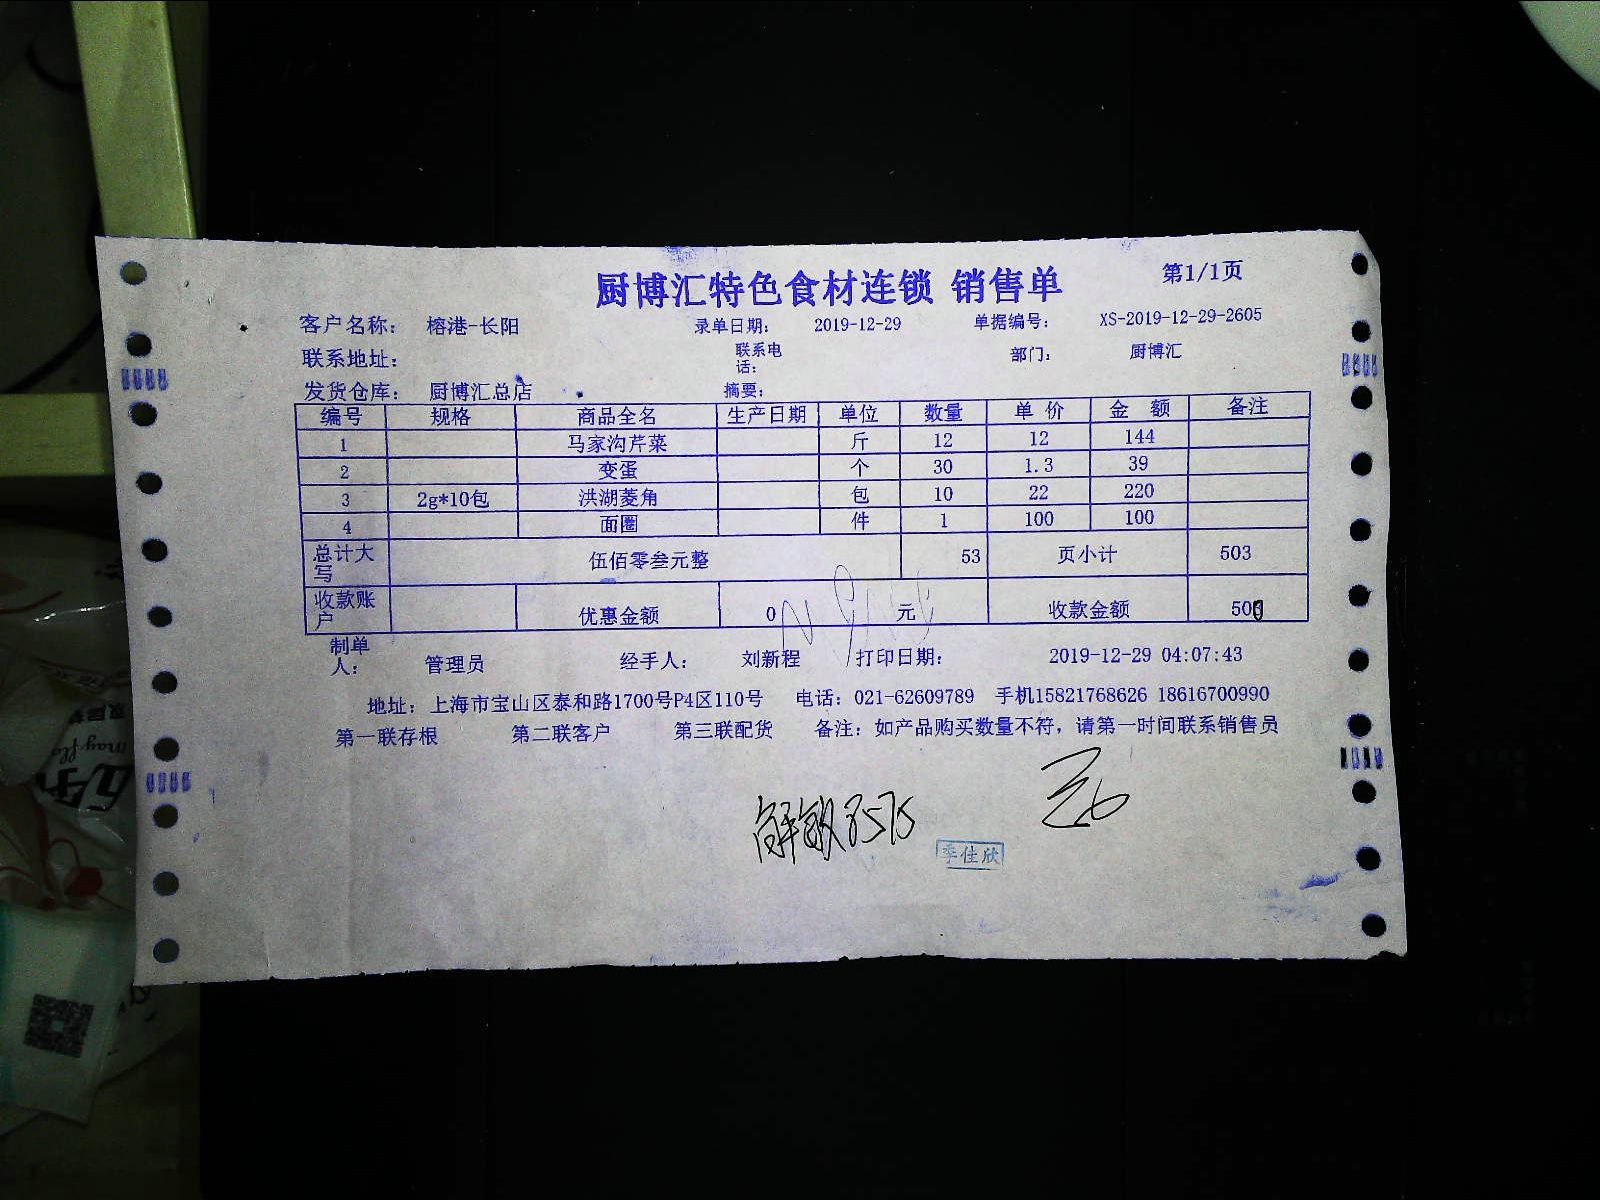 厨博汇特色食材连锁 销售单 第1/1页
客户名称： 榕港-长阳 录单日期： 2019-12-29 单据编号： XS-2019-12-29-2605
联系地址： 联系电话： 部门： 厨博汇
发货仓库： 厨博汇总店 摘要：
编号 规格 商品全名 生产日期 单位 数量 单 价 金 额 备注
1 马家沟芹菜 斤 12 12 144
2 变蛋 个 30 1.3 39
3 2g*10包 洪湖菱角 包 10 22 220
4 面圈 件 1 100 100
总计大写 伍佰零叁元整 53 页小计 503
收款账户 优惠金额 0 元 收款金额 500
制单人： 管理员 经手人： 刘新程 打印日期： 2019-12-29 04:07:43
地址：上海市宝山区泰和路1700号P4区110号 电话：021-62609789 手机15821768626 18616700990
第一联存根 第二联客户 第三联配货 备注：如产品购买数量不符，请第一时间联系销售员
季佳欣